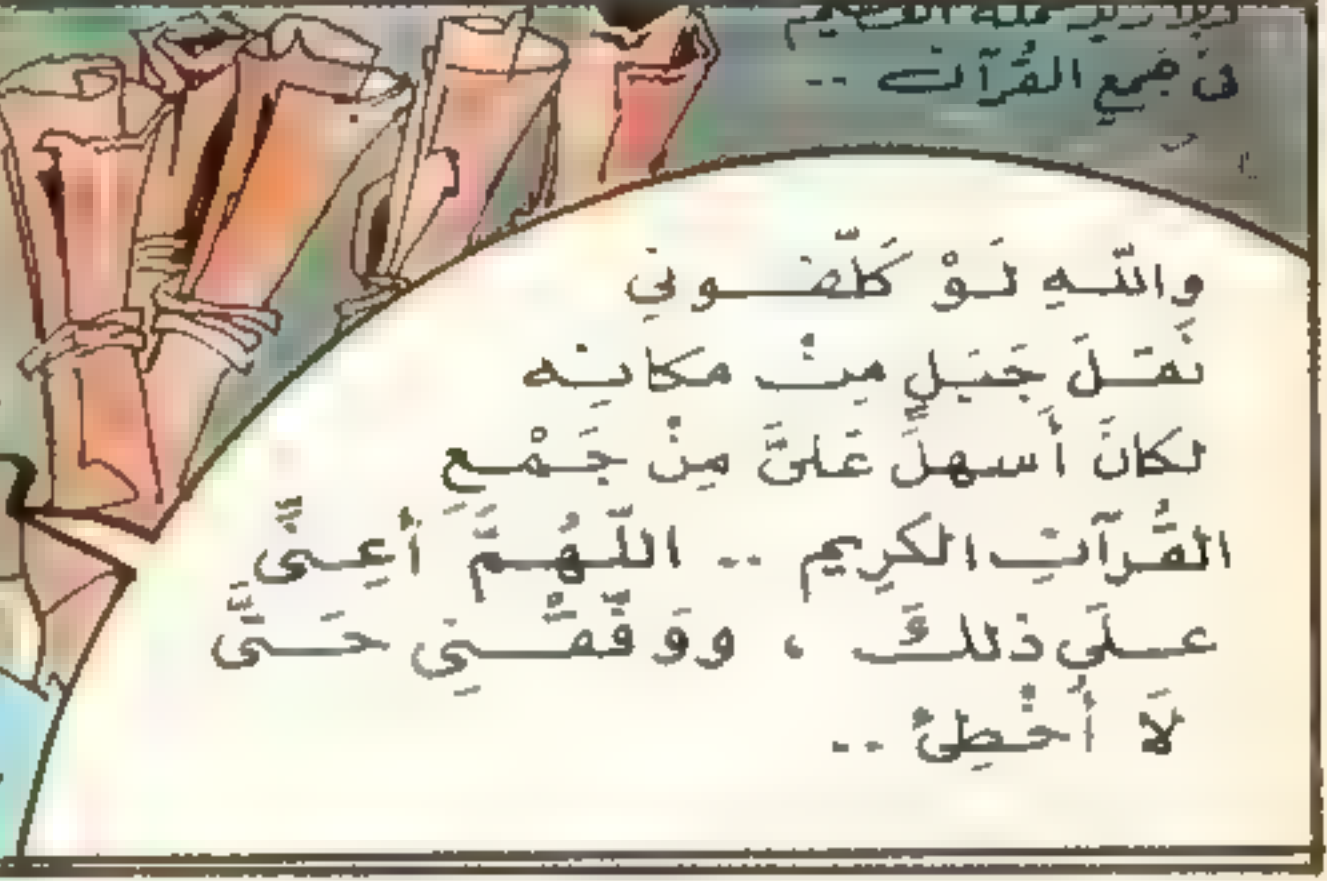 فى جمع القُرآن --
واللّـهِ لَـوْ كَلّفـونِي
نَقـلَ جَبَلٍ مِنْ مكانِـه
لكانَ أَسهلَ عَلىَّ مِنْ جَـمْـعِ
القُـرآنِ الكَرِيمِ -- اللّـهُـمَّ أَعِـنِّى
عـلَي ذلكَ ، ووَفِّقْـنِي حَـتَّى
لَا أُخْـطِئْ --